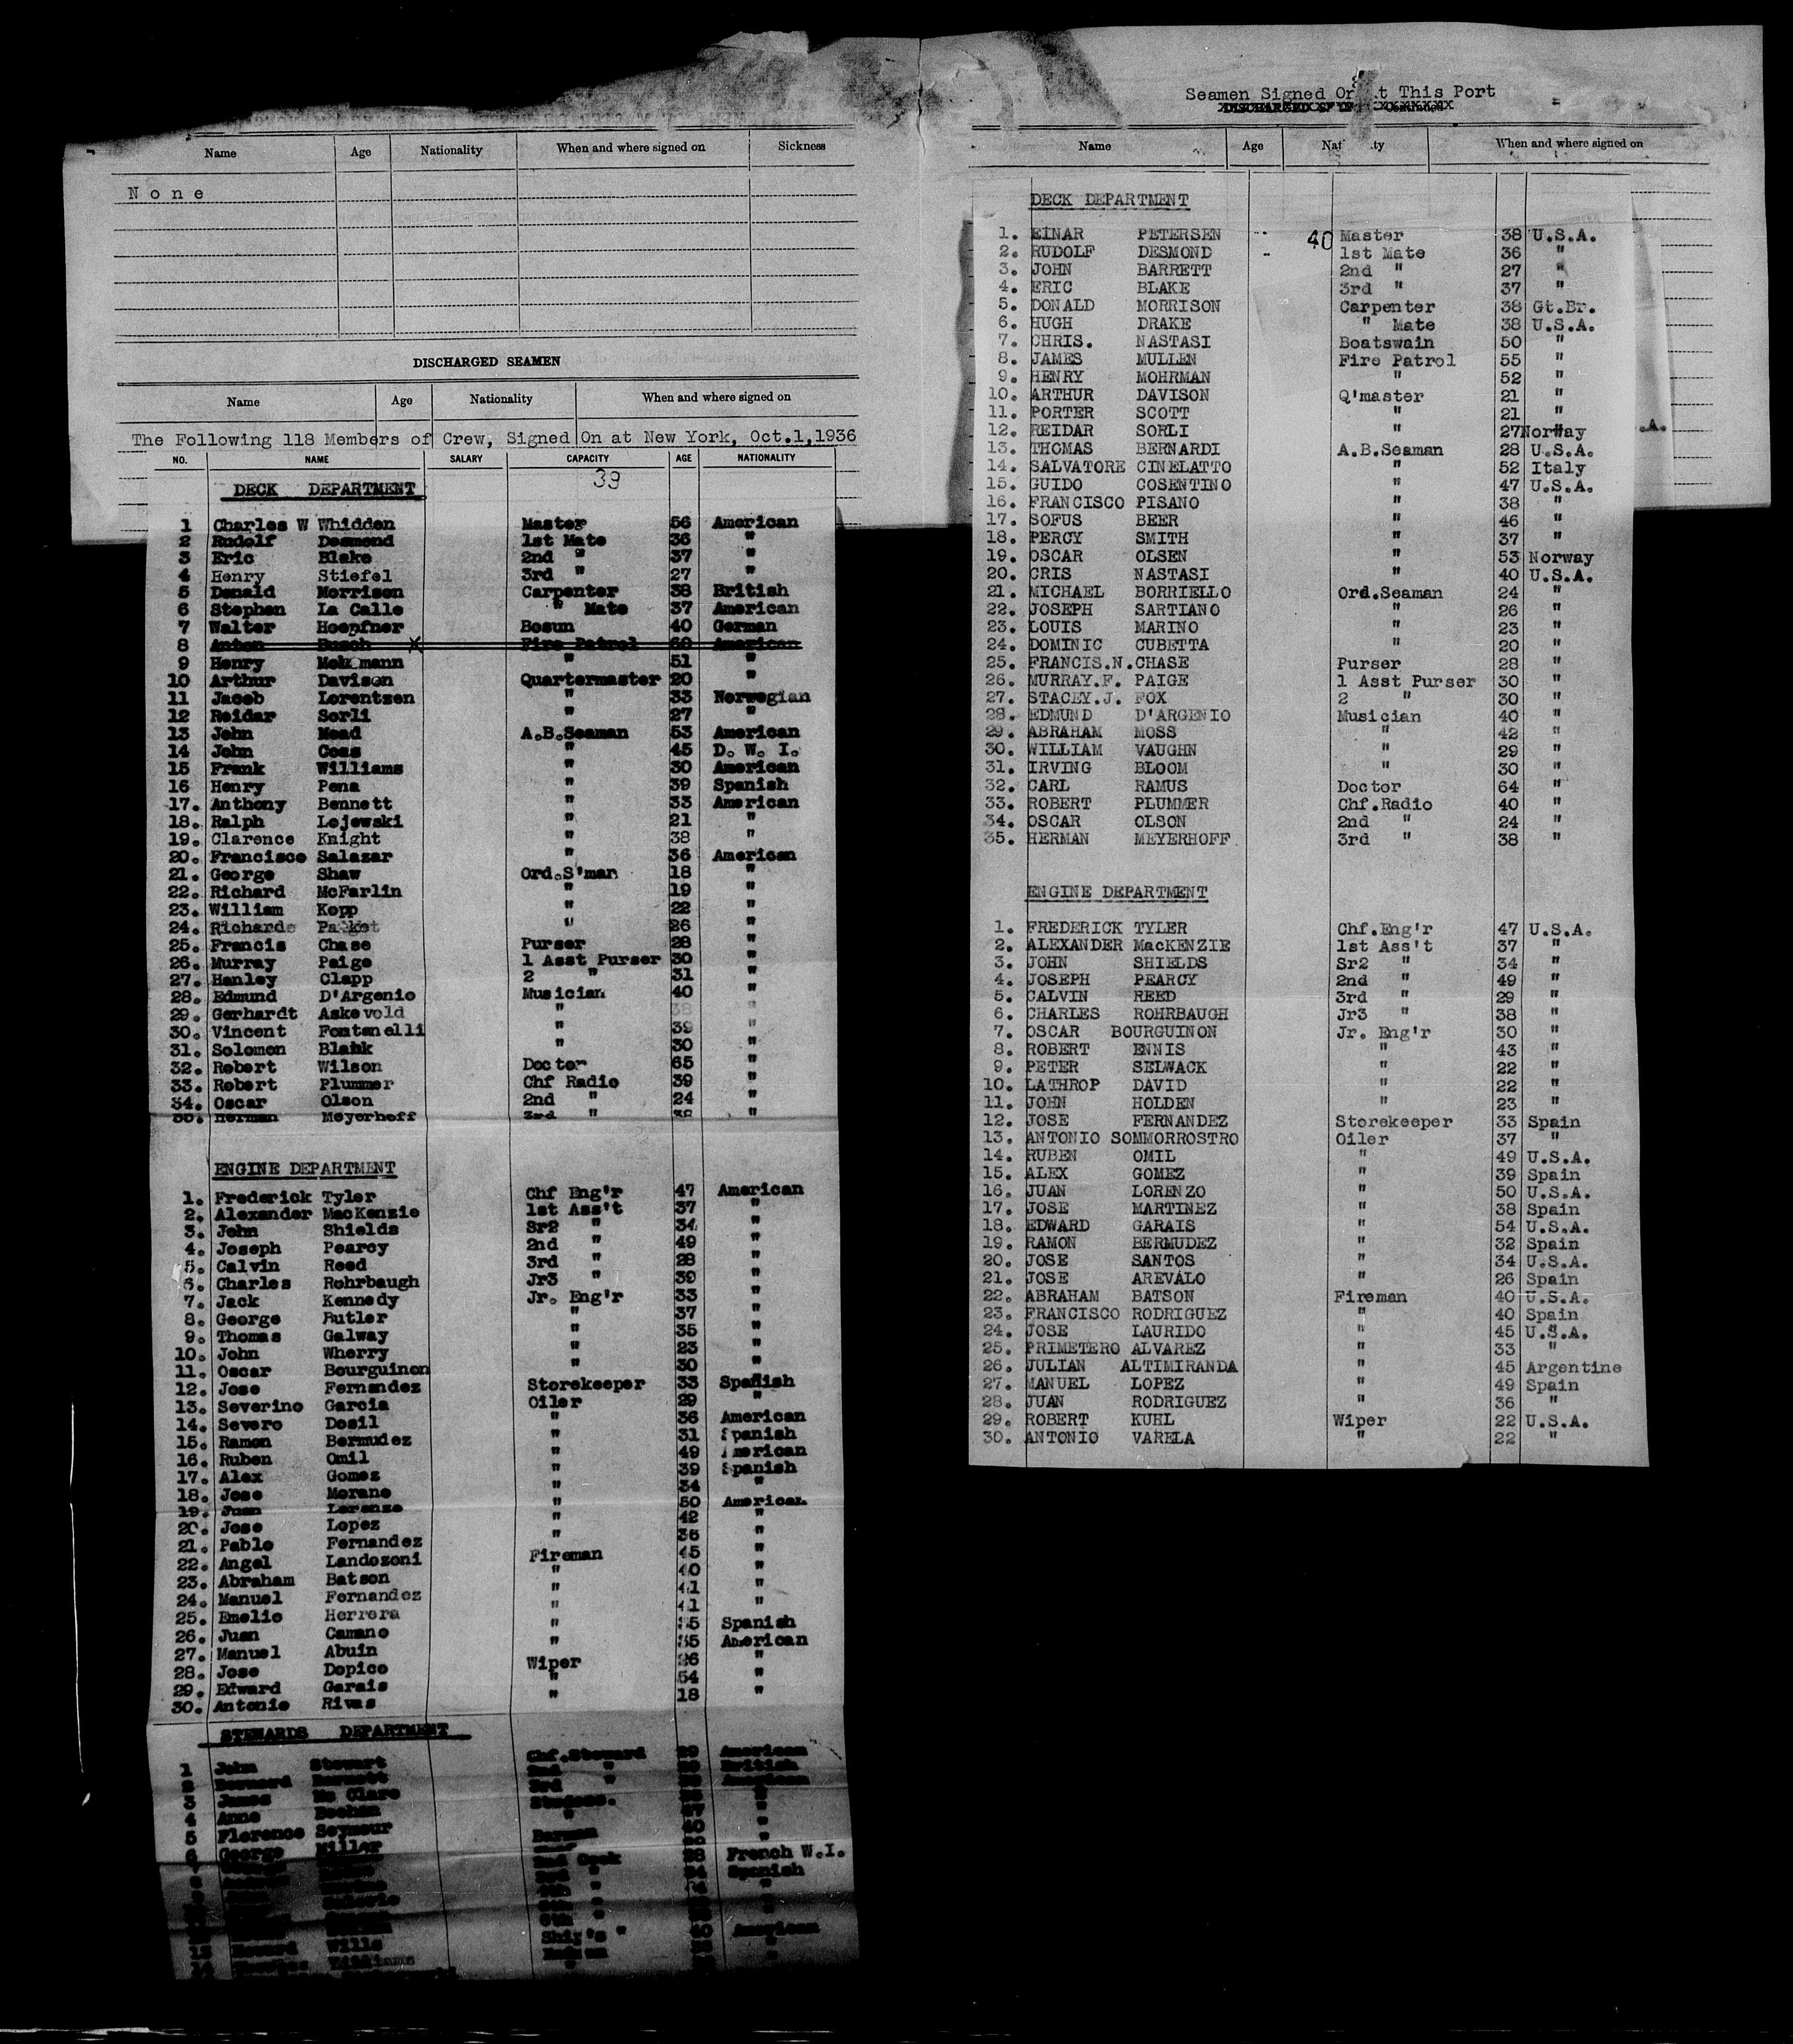 Name Age Nationality When and where signed on Sickness
None
DISCHARGED SEAMEN
Name Age Nationality When and where signed on
The Following 118 Members of Crew, Signed On at New York, Oct.1,1936
NO. NAME SALARY CAPACITY AGE NATIONALITY
39
DECK DEPARTMENT
1 Charles W Whidden Master 56 American
2 Rudolf Desmond 1st Mate 36 "
3 Eric Blake 2nd " 37 "
4 Henry Stiefel 3rd " 27 "
5 Donald Morrison Carpenter 38 British
6 Stephen La Calle " Mate 37 American
7 Walter Hoepfner Bosun 40 German
8 Anton Busch X Fire Patrol 60 American
9 Henry " 51 "
10 Arthur Davison Quartermaster 20 "
11 Jacob Lorentzen " 33 Norwegian
12 Reidar Sorli " 27 "
13 John Mead A.B.Seaman 53 American
14 John Coas " 45 D. W. I.
15 Frank Williams " 30 American
16 Henry Pena " 39 Spanish
17. Anthony Bennett " 33 American
18. Ralph Lejewski " 21 "
19. Clarence Knight " 38 "
20. Francisco Salazar " 36 American
21. George Shaw Ord.S'man 18 "
22. Richard McFarlin " 19 "
23. William Kopp " 22 "
24. Richard " 26 "
25. Francis Chase Purser 28 "
26. Murray Paige 1 Asst Purser 30 "
27. Hanley Clapp 2 " 31 "
28. Edmund D'Argenio Musician 40 "
29. Gerhardt Askevold " 38 "
30. Vincent Fontanelli " 39 "
31. Solomon Blank " 30 "
32. Robert Wilson Doctor 65 "
33. Robert Plummer Chf Radio 39 "
34. Oscar Olson 2nd " 24 "
35. Herman Meyerhoff 3rd " 38 "
ENGINE DEPARTMENT
1. Frederick Tyler Chf Eng'r 47 American
2. Alexander MacKenzie 1st Ass't 37 "
3. John Shields Sr2 " 34 "
4. Joseph Pearcy 2nd " 49 "
5. Calvin Reed 3rd " 28 "
6. Charles Rohrbaugh Jr3 " 39 "
7. Jack Kennedy Jr. Eng'r 33 "
8. George Butler " 37 "
9. Thomas Galway " 35 "
10. John Wherry " 23 "
11. Oscar Bourguinon " 30 "
12. Jose Fernandez Storekeeper 33 Spanish
13. Severino Garcia Oiler 29 "
14. Severo Dosil " 36 American
15. Ramon Bermudez " 31 Spanish
16. Ruben Omil " 49 American
17. Alex Gomez " 39 Spanish
18. Jose Morano " 34 "
19. Juan Lorenzo " 50 American
20. Jose Lopez " 42 "
21. Pablo Fernandez " 35 "
22. Angel Landozoni Fireman 45 "
23. Abraham Batson " 40 "
24. Manuel Fernandez " 41 "
25. Emelio Herrera " 41 "
26. Juan Camano " 35 Spanish
27. Manuel Abuin " 35 American
28. Jose Dopico Wiper 26 "
29. Edward Garais " 54 "
30. Antonio Rivas " 18 "
STEWARDS DEPARTMENT
1 John Stewart Chf.Steward 29 American
2 Bernard 2nd " British
3 James Mc Clare 3rd " American
4 Anne Stewdess. "
5 Florence Seymour "
6 George Miller Barman 40 "
Cook 28 French W.I.
Spanish
Ship's " American
Seamen Signed On At This Port
Name Age Nat ty When and where signed on
40
DECK DEPARTMENT
1. EINAR PETERSEN Master 38 U.S.A.
2. RUDOLF DESMOND 1st Mate 36 "
3. JOHN BARRETT 2nd " 27 "
4. ERIC BLAKE 3rd " 37 "
5. DONALD MORRISON Carpenter 38 Gt.Br.
6. HUGH DRAKE " Mate 38 U.S.A.
7. CHRIS. NASTASI Boatswain 50 "
8. JAMES MULLEN Fire Patrol 55 "
9. HENRY MOHRMAN " 52 "
10. ARTHUR DAVISON Q'master 21 "
11. PORTER SCOTT " 21 "
12. REIDAR SORLI " 27 Norway .A.
13. THOMAS BERNARDI A.B.Seaman 28 U.S.A.
14. SALVATORE CINELATTO " 52 Italy
15. GUIDO COSENTINO " 47 U.S.A.
16. FRANCISCO PISANO " 38 "
17. SOFUS BEER " 46 "
18. PERCY SMITH " 37 "
19. OSCAR OLSEN " 53 Norway
20. CRIS NASTASI " 40 U.S.A.
21. MICHAEL BORRIELLO Ord.Seaman 24 "
22. JOSEPH SARTIANO " 26 "
23. LOUIS MARINO " 23 "
24. DOMINIC CUBETTA " 20 "
25. FRANCIS.N.CHASE Purser 28 "
26. MURRAY.F. PAIGE 1 Asst Purser 30 "
27. STACEY.J. FOX 2 " 30 "
28. EDMUND D'ARGENIO Musician 40 "
29. ABRAHAM MOSS " 42 "
30. WILLIAM VAUGHN " 29 "
31. IRVING BLOOM " 30 "
32. CARL RAMUS Doctor 64 "
33. ROBERT PLUMMER Chf.Radio 40 "
34. OSCAR OLSON 2nd " 24 "
35. HERMAN MEYERHOFF 3rd " 38 "
ENGINE DEPARTMENT
1. FREDERICK TYLER Chf.Eng'r 47 U.S.A.
2. ALEXANDER MacKENZIE 1st Ass't 37 "
3. JOHN SHIELDS Sr2 " 34 "
4. JOSEPH PEARCY 2nd " 49 "
5. CALVIN REED 3rd " 29 "
6. CHARLES ROHRBAUGH Jr3 " 38 "
7. OSCAR BOURGUINON Jr. Eng'r 30 "
8. ROBERT ENNIS " 43 "
9. PETER SELWACK " 22 "
10. LATHROP DAVID " 22 "
11. JOHN HOLDEN " 23 "
12. JOSE FERNANDEZ Storekeeper 33 Spain
13. ANTONIO SOMMORROSTRO Oiler 37 "
14. RUBEN OMIL " 49 U.S.A.
15. ALEX GOMEZ " 39 Spain
16. JUAN LORENZO " 50 U.S.A.
17. JOSE MARTINEZ " 38 Spain
18. EDWARD GARAIS " 54 U.S.A.
19. RAMON BERMUDEZ " 32 Spain
20. JOSE SANTOS " 34 U.S.A.
21. JOSE AREVALO " 26 Spain
22. ABRAHAM BATSON Fireman 40 U.S.A.
23. FRANCISCO RODRIGUEZ " 40 Spain
24. JOSE LAURIDO " 45 U.S.A.
25. PRIMETERO ALVAREZ " 33 "
26. JULIAN ALTIMIRANDA " 45 Argentine
27. MANUEL LOPEZ " 49 Spain
28. JUAN RODRIGUEZ " 36 "
29. ROBERT KUHL Wiper 22 U.S.A.
30. ANTONIO VARELA " 22 "